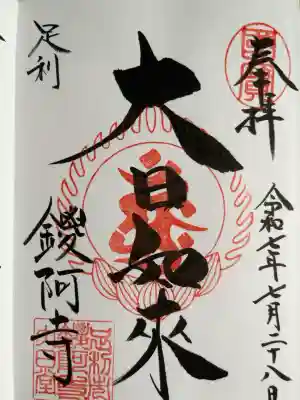 奉拝
令和七年七月二十八日
大日如來
足利
鑁阿寺